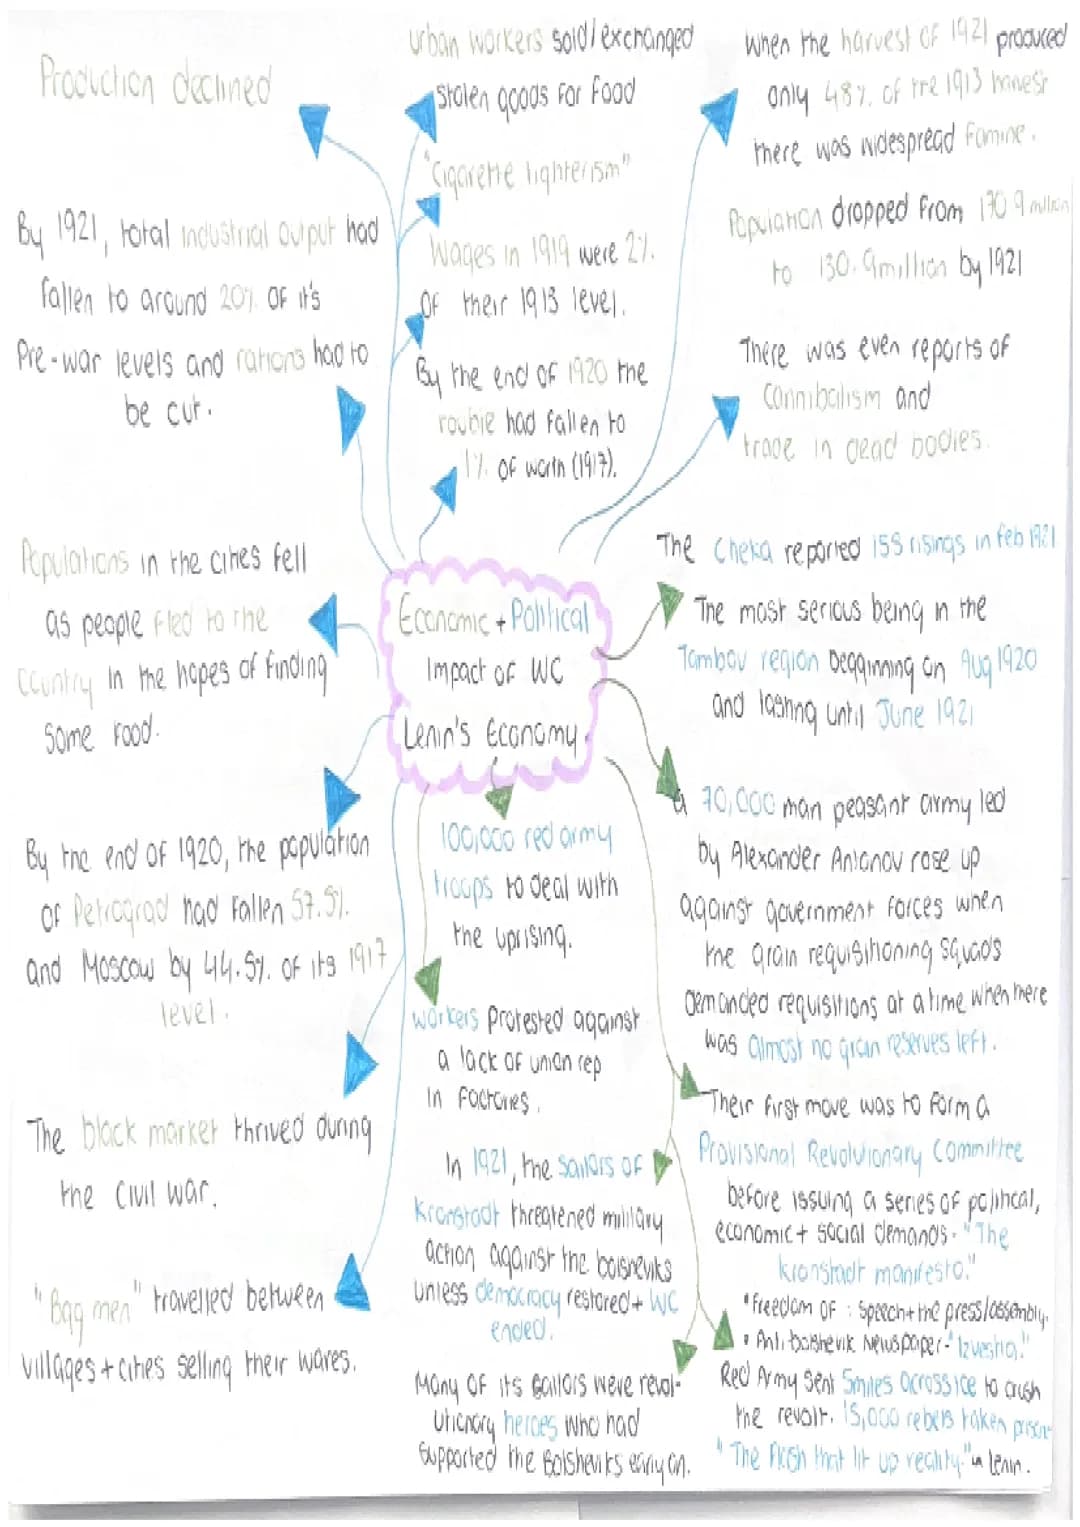 Production declined
By 1921, total industrial output had
fallen to around 20% of it's
Pre-war levels and rations had to
be cut.
Populations in the cities fell
as people fled to the
country in the hopes of finding
some food.
By the end of 1920, the population
of Petrograd had fallen 57.5%
and Moscow by 44.5% of its 1917
level.
The black market thrived during
the civil war.
"Bag men" travelled between
villages + cities selling their wares.
urban workers sold/exchanged
stolen goods for food
"Cigarette lighterism"
Wages in 1919 were 2%
of their 1913 level.
By the end of 1920 the
rouble had fallen to
1% of worth (1917).
When the harvest of 1921 produced
only 48% of the 1913 harvest
there was widespread famine.
Population dropped from 170.9 million
to 130.9million by 1921
There was even reports of
Cannibalism and
trade in dead bodies.
Economic + Political
Impact of WC
Lenin's Economy
The Cheka reported 155 risings in Feb 1921
The most serious being in the
Tambov region beggining on Aug 1920
and lasting until June 1921
a 70,000 man peasant army led
by Alexander Antonov rose up
against government forces when
the grain requisitioning squads
demanded requisitions at a time when there
was almost no grain reserves left.
100,000 red army
troops to deal with
the uprising.
workers protested against
a lack of union rep
in factories.
In 1921, the Sailors of
Kronstadt threatened military
action against the bolsheviks
unless democracy restored + WC
ended.
Many of its sailors were revol-
utionary heroes who had
supported the Bolsheviks early on.
Their first move was to form a
Provisional Revolutionary Committee
before issuing a series of political,
economic + social demands - "The
kronstadt manifesto."
•freedom of : speech + the press/assembly.
• Anti-bolshevik Newspaper - "Izvestia."
Red Army sent 5miles across ice to crush
the revolt. 15,000 rebels taken prison
"The Flash that lit up reality." Lenin.